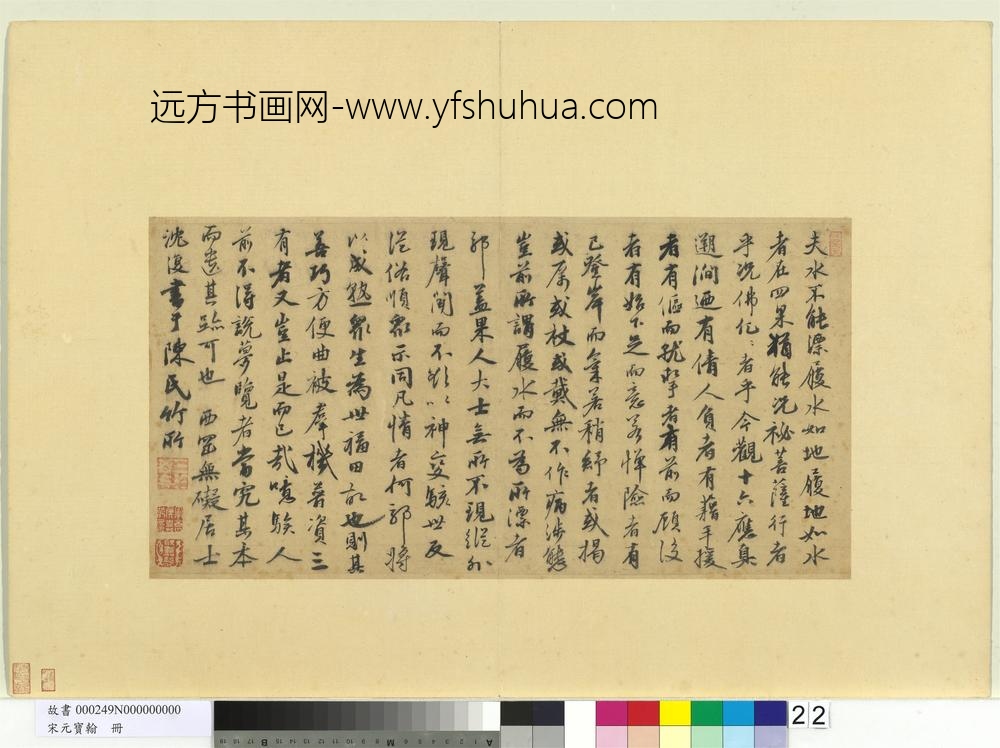 远方书画网-www.yfshuhua.com
夫水不能漂履水如地履地如水
者在四果猶能况祕菩薩行者
乎况佛佗〻者乎今觀十六應真
遡澗迺有倩人負者有藉手援
者有傴而就掣者有前而顧後
者有始下足而意若憚險者有
已登岸而氣若稍紓者或揭
或厲或杖或戴無不作病涉態
豈前所謂履水而不為所漂者
耶蓋果人大士無所不現縱外
現聲聞而不欲以神變駭世反
從俗順衆示同凡情者何耶將
以成熟衆生為世福田故也則其
善巧方便曲被羣機葊資三
有者又豈止是而已哉噫騃人
前不得說夢覽者當究其本
而遺其跡可也 西巖無礙居士
沈浚書于陳氏竹所
故書 000249N000000000
宋元寶翰 冊
B M A
22